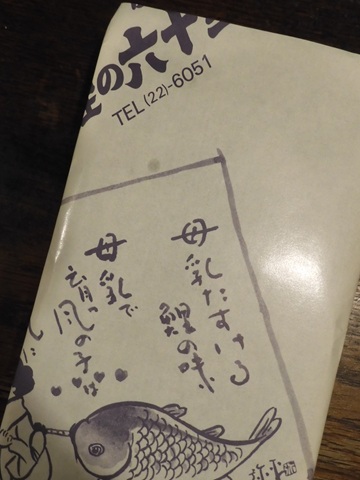 の六十
TEL(22)-6051
母乳たすける
鯉の味
母乳で
の子は